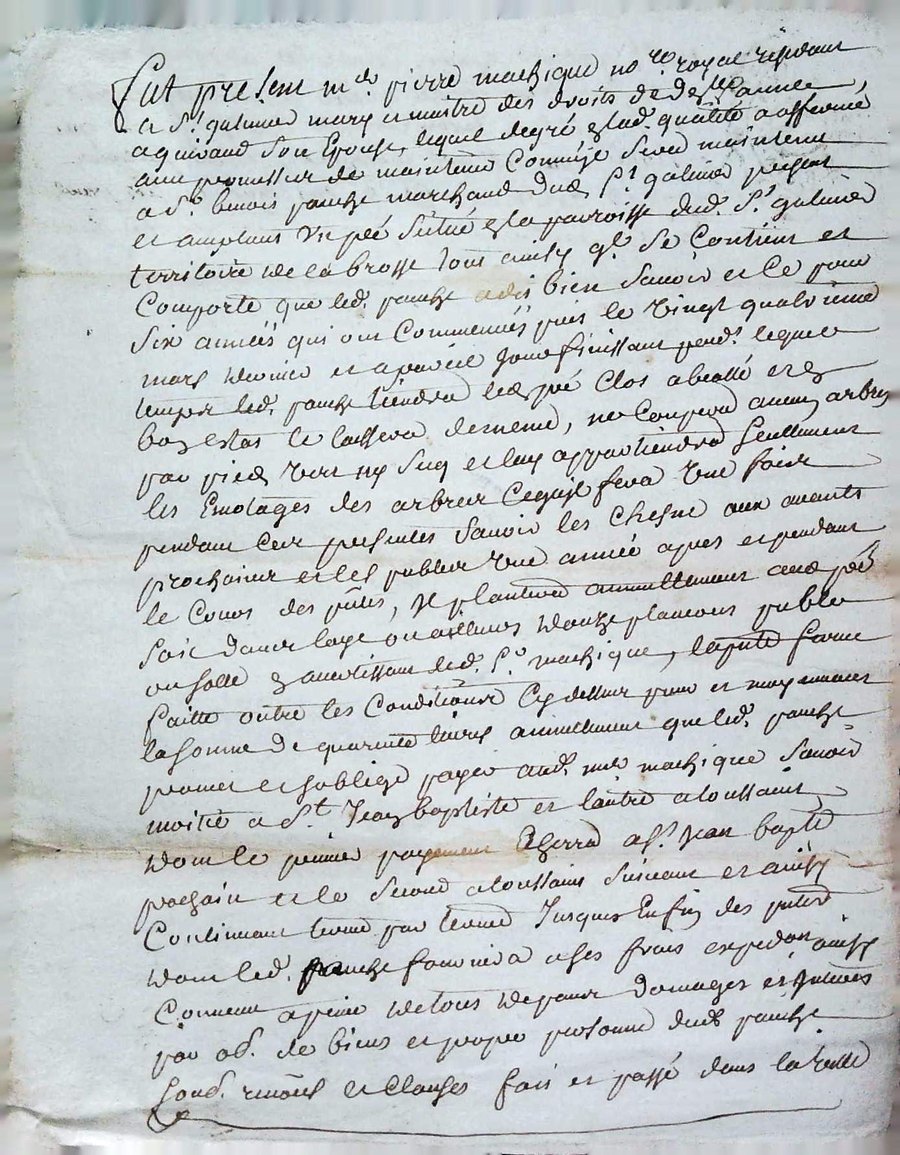 Fut present me pierre machique nore royal residant
a St galmier mary et maitre des droits de de lle annee
aquiraud son Epouse, lequel degré esd. qualité a affermé
avec promesse de maintenir Comme Il sera maintenu
a Sr. benois ponchz marchand dud. St galmier present
et acceptant Un pré situé es la parroisse dud. St galmier
territoire de la brosse tout ainsy ql. Se Contient et
Comporte que led. ponchz a dit bien Savoir et Ce pour
Six années qui ont Commencées puis le Vingt quatrieme
mars dernier et a pareil Jour finissant pend. lequel
temps led. ponchz tiendra led. pré Clos
bon estat le laissera de meme, ne Coupera aucun arbre
par pied vert ny Secq et luy appartiendra seullement
les Emotages des arbres Cequil fera Une fois
pendant les presentes Savoir les Chesne aux avants
prochains et les publes une année apres et pendant
le Cours des ptes, Il plantera annuellement aud. pré
soit dans laye ou ailleurs douze plancons publes
ou solle en avertissant led. Sr. machique, la pnte ferme
faitte outre les Conditions Cy dessus pour et moyennant
la somme de quarente livres annuellement que led. ponchz
promet et soblige payer aud. me machique Savoir
moitié a St Jean baptiste et lautre a toussaint
dont le premier payement Echerra a St Jean bapte
prochain et le Second a toussaint Suivant et ainsy
Continuant terme par terme Jusques En fin des pntes
dont led. ponchz fournira a ses frais expedon ainsy
Convenu a peine de tous depens domages et Interests
par ob. de biens et propre personne dud. ponchz
Soub. renons et Clauses fait et passé dans la ville